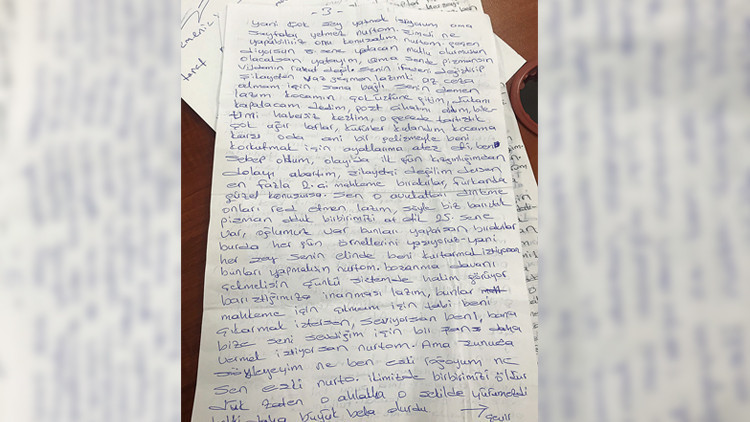 - 3 -
yani çok şey yazmak istiyorum ama
sayfalar yetmez nurtom şimdi ne
yapabiliriz onu konuşalım nurtom. geçen
diyorsun 5 sene yatacan mutlu olursun
olacaksan yatayım, ama sende pişmansın
vicdanın rahat değilse senin ifadeni değiştirip
şikayetden vaz geçmen lazımki az ceza
almam için sana bağlı senin demen
lazım kocamın çok üstüne gittim, dükanı
kapatacam dedim, post cihazını aldım, iple-
timi habersiz kestim, o gecede tartıştık
çok ağır laflar, küfürler kullandım kocama
karşı oda ani bir gelişmeyle beni
korkutmak için ayaklarıma ateş etti, ben
sebep oldum, olayında ilk gün kızgınlığımdan
dolayı abartım, şikayetçi değilim dersen
en fazla 2.ci mahkeme bırakırlar, furkanda
güzel konuşursa. Sen o avukatları dinleme
onları red etmen lazım, şöyle biz barıştık
pişman olduk birbirimizi af etik 25. sene
var, oğlumuz var bunları yaparsan bırakırlar
burda her gün örneklerini yaşıyoruz yani
her şey senin elinde beni kurtarmak istiyorsan
bunları yapmalısın nurtom. boşanma davanı
çekmelisin çünkü sistemde halim görüyor
barıştığımıza inanması lazım, bunlar
mahkeme için çıkmam için tabi beni
çıkarmak istersen, seviyorsan beni, bana
bize seni sevdiğim için bir şans daha
vermek istiyorsan nurtom. Ama şunuda
söyleyeyim ne ben eski
sen eski nurto. ikimizde birbirimizi öldür
dük zaten o ahlakla o şekilde yürümezdi
belki daha büyük bela dururdu →
çevir